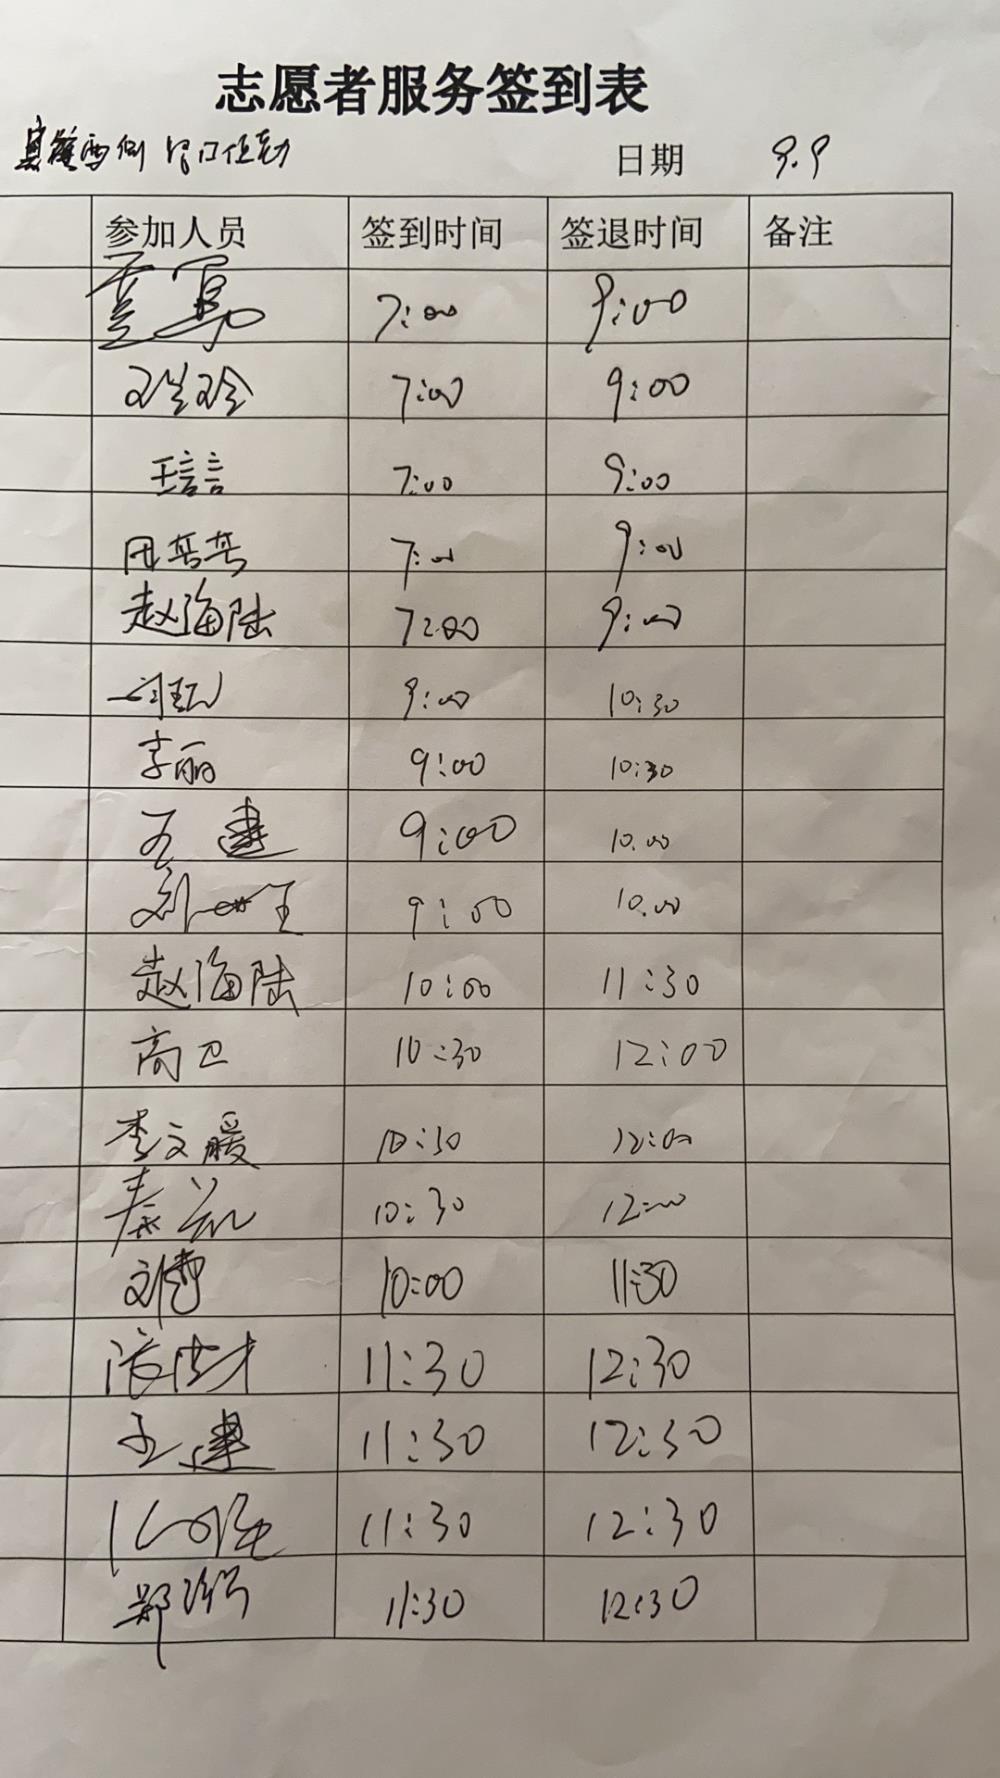 志愿者服务签到表
日期 9.9
参加人员 签到时间 签退时间 备注
7:00 9:00
7:00 9:00
王言言 7:00 9:00
田苦苦 7:00 9:00
赵海陆 7:00 9:00
9:00 10:30
李丽 9:00 10:30
王建 9:00 10.00
刘 9:00 10.00
赵海陆 10:00 11:30
高卫 10:30 12:00
李文暖 10:30 12:00
秦 10:30 12:00
10:00 11:30
11:30 12:30
王建 11:30 12:30
11:30 12:30
郑 11:30 12:30